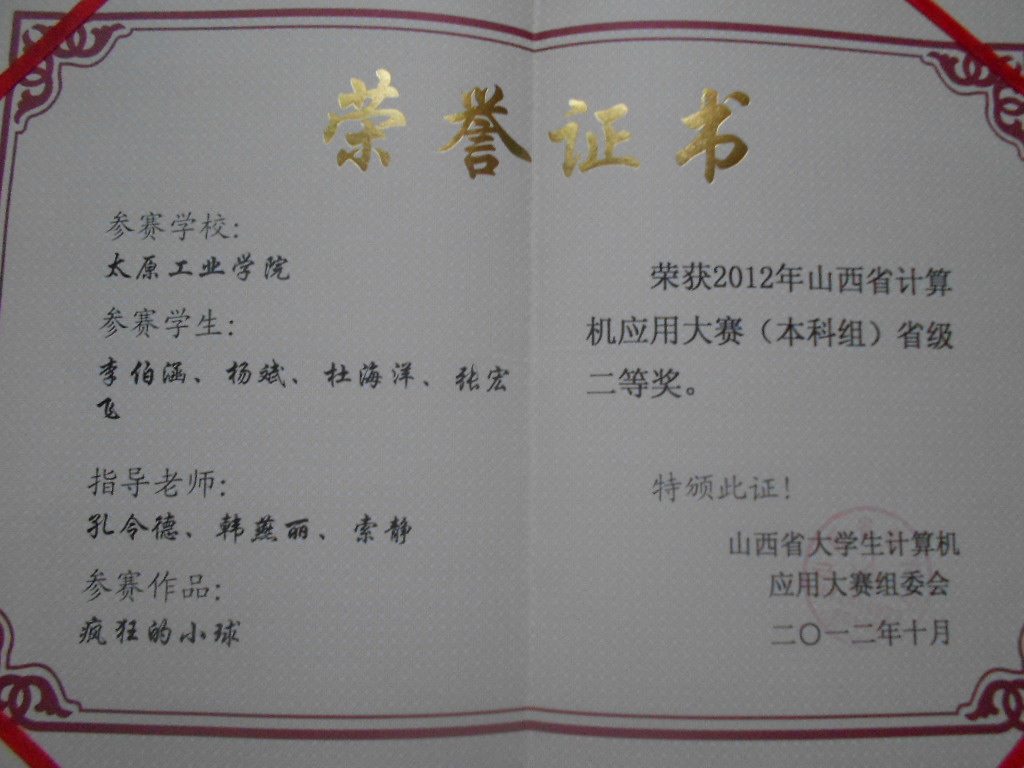 荣誉证书
参赛学校:
太原工业学院
参赛学生:
李伯涵、杨斌、杜海洋、张宏
飞
指导老师:
孔令德、韩燕丽、索静
参赛作品:
疯狂的小球
荣获2012年山西省计算
机应用大赛（本科组）省级
二等奖。
特颁此证!
山西省大学生计算机
应用大赛组委会
二〇一二年十月